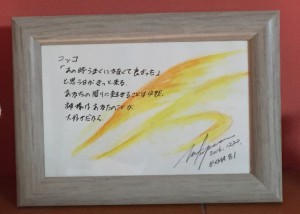 「あの時うまくいかなくて良かった」
と思う日がきっと来る。
あなたの周りに起きることは必然。
神様はあなたのことが
大好きだから
2016.12.20